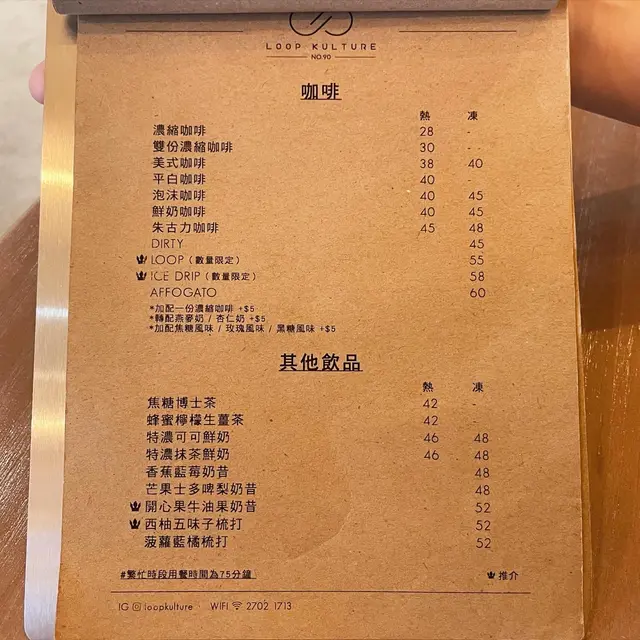 LOOP KULTURE
NO.90
咖啡
熱 凍
濃縮咖啡 28 -
雙份濃縮咖啡 30 -
美式咖啡 38 40
平白咖啡 40 -
泡沫咖啡 40 45
鮮奶咖啡 40 45
朱古力咖啡 45 48
DIRTY 45
LOOP (數量限定) 55
ICE DRIP (數量限定) 58
AFFOGATO 60
*加配一份濃縮咖啡 +$5
*轉配燕麥奶 / 杏仁奶 +$5
*加配焦糖風味 / 玫瑰風味 / 黑糖風味 +$5
其他飲品
熱 凍
焦糖博士茶 42 -
蜂蜜檸檬生薑茶 42 -
特濃可可鮮奶 46 48
特濃抹茶鮮奶 46 48
香蕉藍莓奶昔 48
芒果士多啤梨奶昔 48
開心果牛油果奶昔 52
西柚五味子梳打 52
菠蘿藍橘梳打 52
#繁忙時段用餐時間為75分鐘 推介
IG loopkulture WIFI 2702 1713